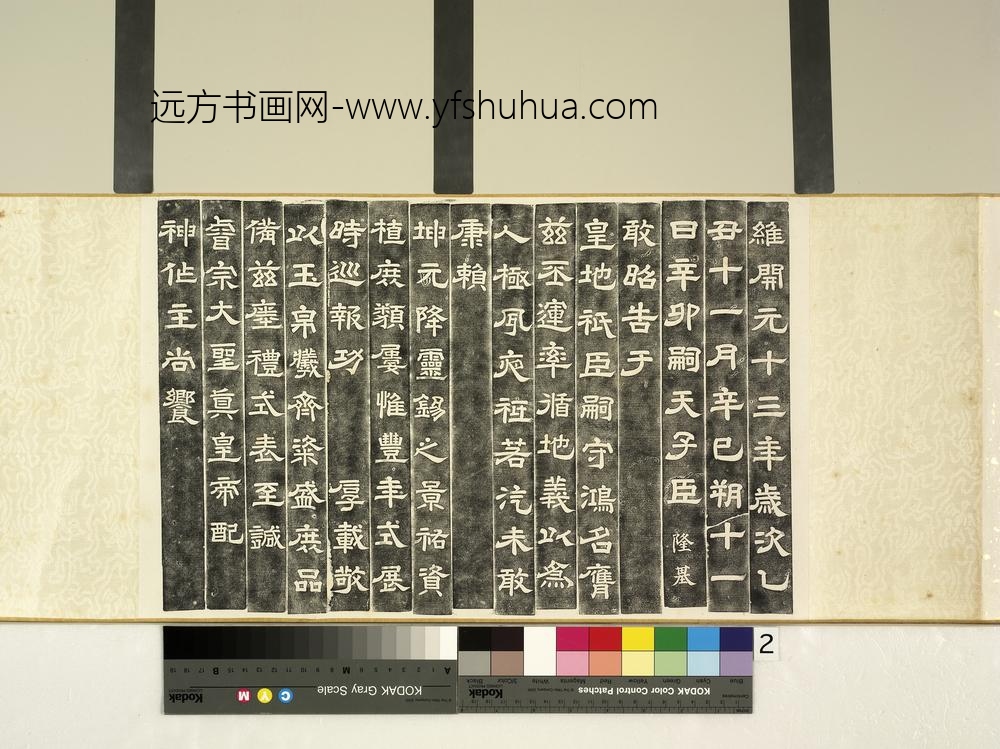 远方书画网-www.yfshuhua.com
維開元十三年歳次乙
丑十一月辛巳朔十一
日辛卯嗣天子臣隆基
敢昭告于
皇地祇臣嗣守鴻名膺
茲丕運率循地義以為
人極夙夜祗若汔未敢
康賴
坤元降靈錫之景祐資
植庶類屢惟豐年式展
時巡報功厚載敬
以玉帛犧齊粢盛庶品
備茲瘞禮式表至誠
睿宗大聖真皇帝配
神作主尚饗
2
KODAK Gray Scale
C Y M
Kodak
A 1 2 3 4 5 6 M 8 9 10 11 12 13 14 15 B 17 18 19
KODAK Color Control Patches
Kodak
Blue Cyan Green Yellow Red Magenta White 3/Color Black
Centimetres